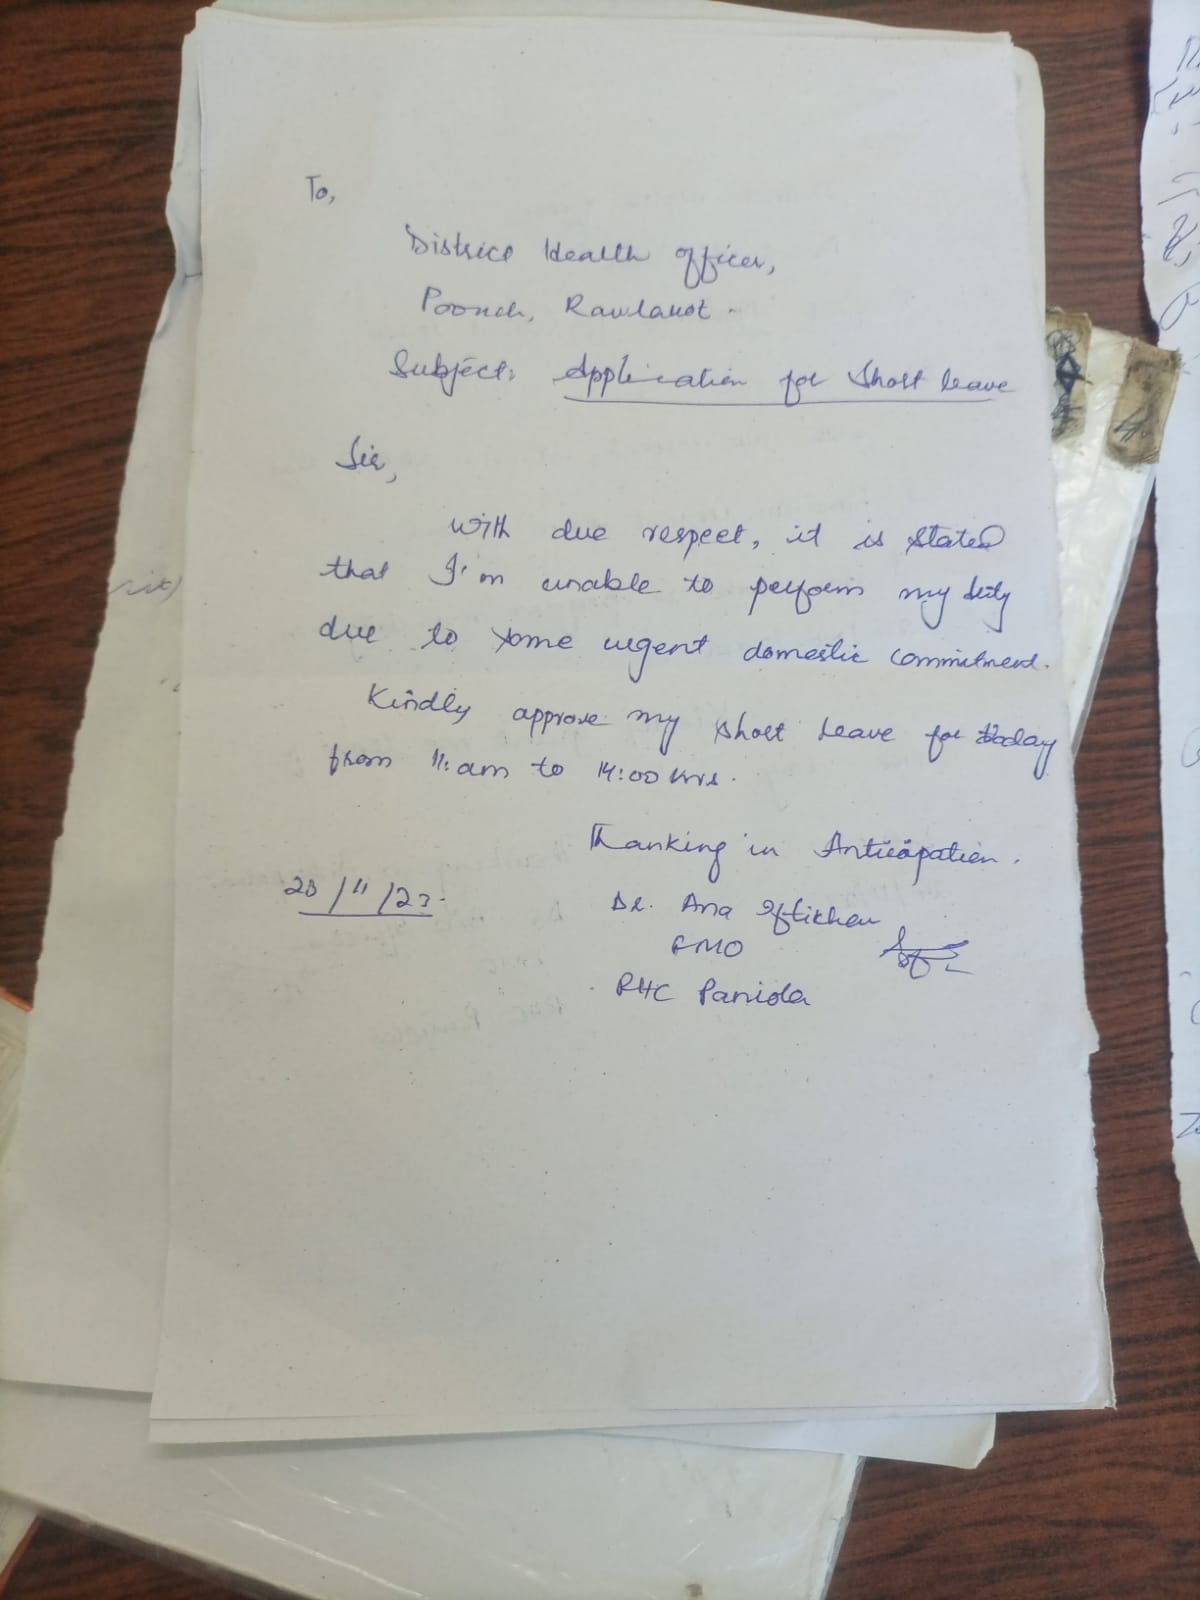 To,
District Health Officer,
Poonch, Rawlakot.
Subject: Application for Short leave
Sir,
With due respect, it is stated
that I'm unable to perform my duty
due to some urgent domestic commitment.
Kindly approve my short leave for today
from 11: am to 14:00 hrs.
Thanking in Anticipation.
/11/23.
Dr. Ana Iftikhar
FMO
RHC Paniola